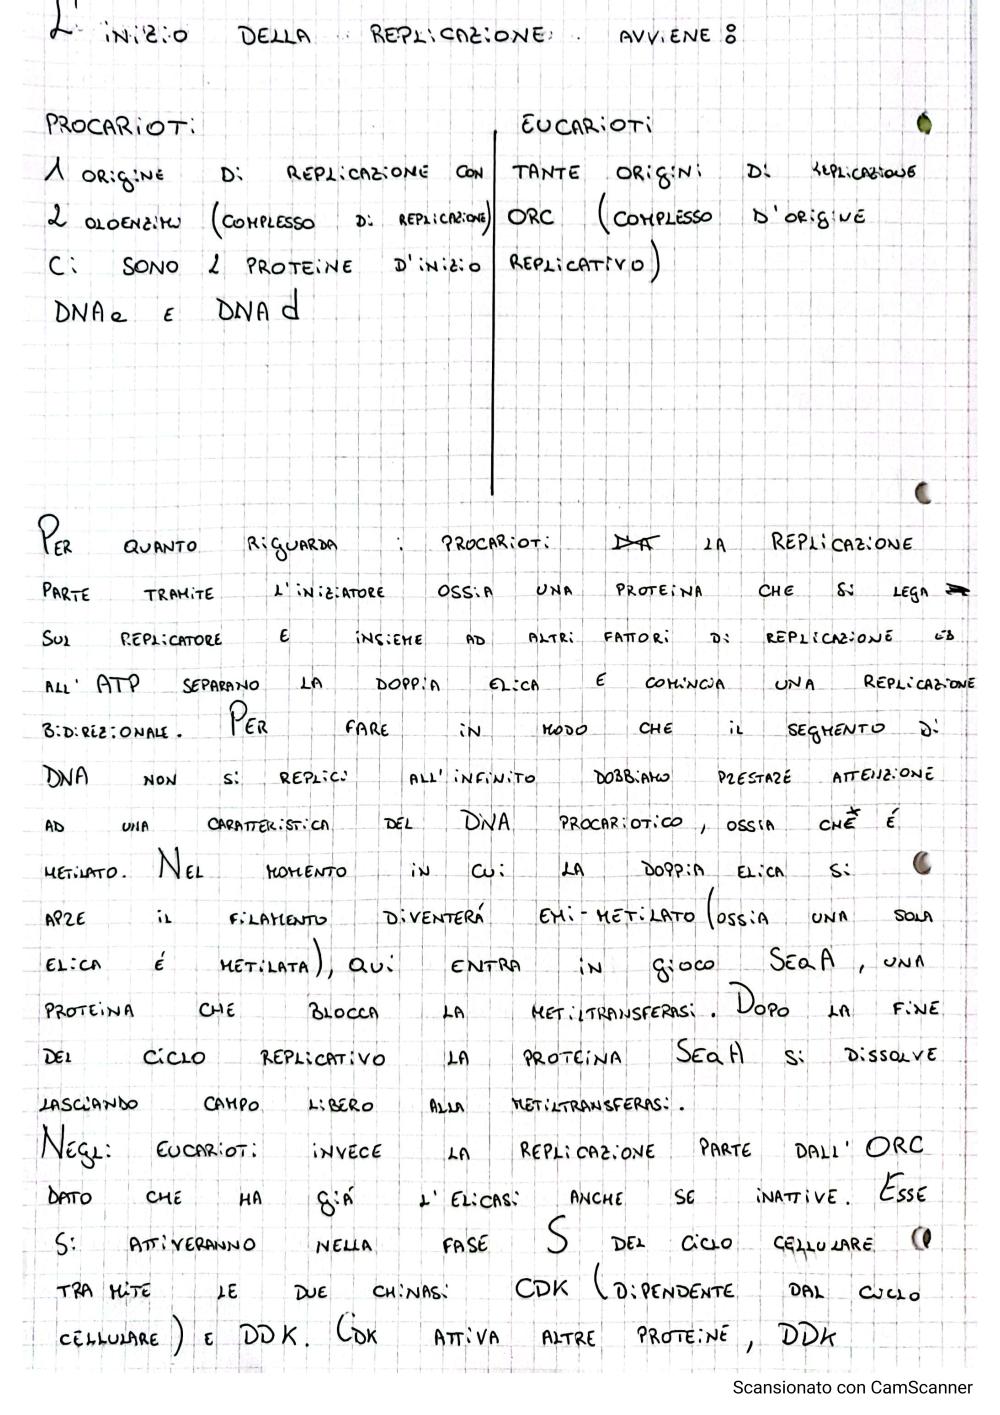 L'inizio DELLA REPLICAZIONE AVVIENE:
PROCARIOTI:
1 ORIGINE Di REPLICAZIONE CON
2 OLOENZIMI (COMPLESSO Di REPLICAZIONE)
Ci SONO 2 PROTEINE D'INIZIO
DNAa E DNAd
EUCARIOTI
TANTE ORIGINI Di REPLICAZIONE
ORC (COMPLESSO D'ORIGINE
REPLICATIVO)
PER QUANTO RIGUARDA i PROCARIOTi LA REPLICAZIONE
PARTE TRAMITE L'INIZIATORE OSSIA UNA PROTEINA CHE Si LEGA
SUL REPLICATORE E INSIEME AD ALTRI FATTORI Di REPLICAZIONE
ALL' ATP SEPARANO LA DOPPIA ELICA E COMINCIA UNA REPLICAZIONE
BIDIREZIONALE. PER FARE IN MODO CHE IL SEGMENTO Di
DNA NON Si REPLICHI ALL'INFINITO DOBBIAMO PRESTARE ATTENZIONE
AD UNA CARATTERISTICA DEL DNA PROCARIOTICO, OSSIA CHE* É
METILATO. NEL MOMENTO IN CUI LA DOPPIA ELICA Si
APRE IL FILAMENTO DIVENTERÁ EMI-METILATO (OSSIA UNA SOLA
ELICA É METILATA), QUI ENTRA IN GIOCO SEQA, UNA
PROTEINA CHE BLOCCA LA METILTRANSFERASI. DOPO LA FINE
DEL CICLO REPLICATIVO LA PROTEINA SEQA Si DISSOLVE
LASCIANDO CAMPO LIBERO ALLA METILTRANSFERASI.
NEGLI EUCARIOTI INVECE LA REPLICAZIONE PARTE DALL' ORC
DATO CHE HA GIÁ L'ELICASI ANCHE SE INATTIVE. ESSE
Si ATTIVERANNO NELLA FASE S DEL CICLO CELLULARE
TRAMITE LE DUE CHINASI CDK (DIPENDENTE DAL CICLO
CELLULARE) E DDK. CDK ATTIVA ALTRE PROTEINE, DDK
Scansionato con CamScanner